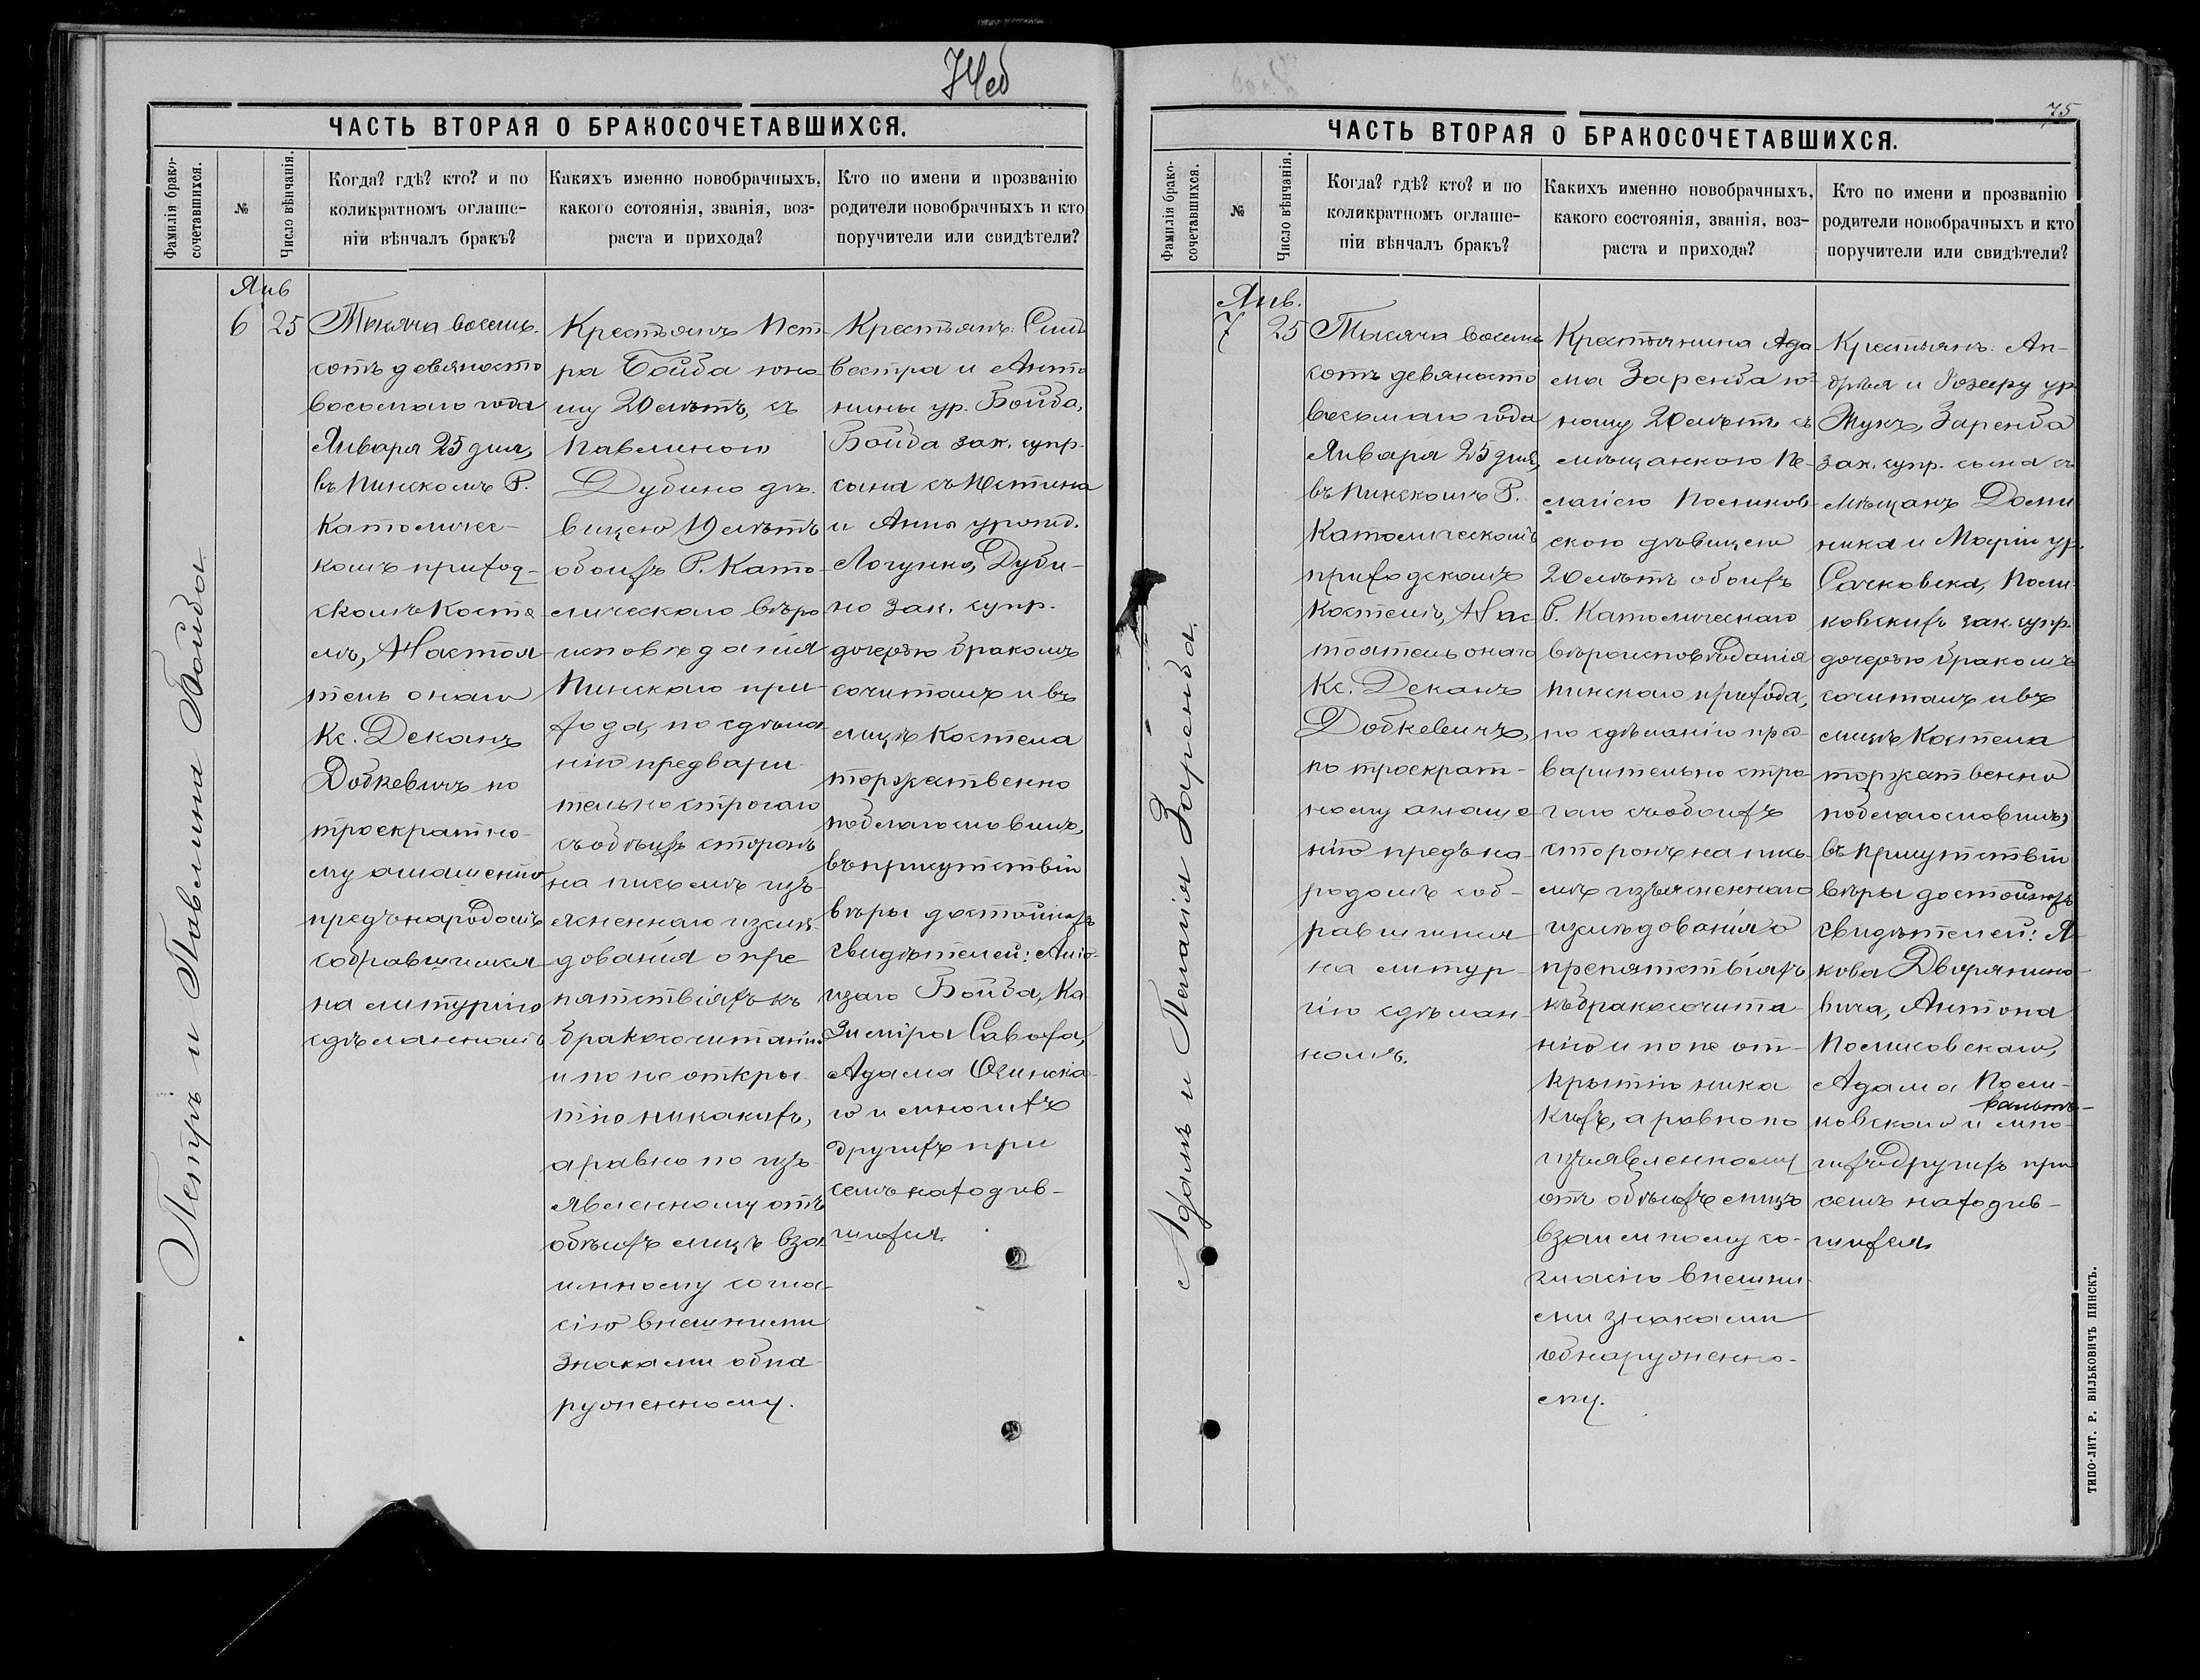 74об
ЧАСТЬ ВТОРАЯ О БРАКОСОЧЕТАВШИХСЯ.
Фамилія брако-
сочетавшихся.
№
Число вѣнчанія.
Когда? гдѣ? кто? и по
коликратномъ оглаше-
ніи вѣнчалъ бракъ?
Какихъ именно новобрачныхъ,
какого сотоянія, званія, воз-
раста и прихода?
Кто по имени и прозванію
родители новобрачныхъ и кто
поручители или свидѣтели?
Петръ и Павлина Бойба
Янв
6
25
Тысяча восемь
сотъ девяносто
восьмаго года
Января 25 дня,
въ Пинскомъ Р.
Католичес-
комъ приход-
скомъ Косте
лѣ, Настоя
тель онаго
Кс. Деканъ
Добкевичъ по
троекратно-
му оглашенію
предъ народомъ
собравшимся
на литургію
сдѣланномъ
Крестьянъ Пет
ра Бойба юно
шу 20 лѣтъ, съ
Павлиною
Дубино дѣ-
вицею 19 лѣтъ
обоихъ Р. Като-
лическаго вѣро
исповѣданія
Пинскаго при-
хода, по сдѣла
нію предвари-
тельно строгаго
съ обѣихъ сторонъ
на письмѣ изъ-
ясненнаго изслѣ-
дованія о пре
пятствіяхъ къ
бракосочитанію
и по не откры-
тію никакихъ,
а равно по изъ
явленному отъ
обѣихъ лицъ вза
имному согла-
сію внешними
знаками обна
руженному.
Крестьянъ: Силь
вестра и Анто
нины ур. Бойба,
Бойба зак. супр.
сына съ Юстина
и Анны урожд.
Логунко, Дуби-
но зак. супр.
дочерью бракомъ
сочиталъ и въ
лицѣ Костела
торжественно
поблагословилъ,
въ присутствіи
вѣры достойныхъ
свидѣтелей: Алю-
изаго Бойба, Ка
зимira Саваха,
Адама Огинска-
го и многихъ
другихъ при
семъ находив-
шихся.
75
ЧАСТЬ ВТОРАЯ О БРАКОСОЧЕТАВШИХСЯ.
Фамилія брако-
сочетавшихся.
№
Число вѣнчанія.
Когда? гдѣ? кто? и по
коликратномъ оглаше-
ніи вѣнчалъ бракъ?
Какихъ именно новобрачныхъ,
какого состоянія, званія, воз-
раста и прихода?
Кто по имени и прозванію
родители новобрачныхъ и кто
поручители или свидѣтели?
Адамъ и Пелагія Заренба.
Янв.
7
25
Тысяча восемь
сотъ девяносто
восьмаго года
Января 25 дня,
въ Пинскомъ Р.
Католическомъ
приходскомъ
Костелѣ, Нас
тоятель онаго
Кс. Деканъ
Добкевичъ,
по троекрат-
ному оглаше
нію предъ на-
родомъ соб-
равшимся
на литур-
гію сдѣлан
номъ.
Крестьянина Ада
ма Заренба ю-
ношу 20 лѣтъ съ
мѣщанкою Пе-
лагіею Посликов
скою дѣвицею
20 лѣтъ обоихъ
Р. Католическаго
вѣроисповѣданія
Пинскаго прихода,
по сдѣланію пред-
варительно стро
гаго съ обоихъ
сторонъ на пись-
мѣ изъясненнаго
изслѣдованія о
препятствіяхъ
къ бракосочита-
нію и по не от-
крытію ника
кихъ, а равно по
изъявленному
отъ обѣихъ лицъ
взаимному со-
гласію внешни
ми знаками
обнаруженно-
му.
Крестьянъ: Ан-
дрея и Розеру ур
Жукъ, Заренба
зак. супр. сына съ
мѣщанъ Доми
ника и Маріи ур.
Сачковска, Посли-
ковскихъ зак. супр.
дочерью бракомъ
сочиталъ и въ
лицѣ Костела
торжественно
поблагословилъ,
въ присутствіи
вѣры достойныхъ
свидѣтелей: Я-
кова Дворянино-
вича, Антона
Посликовскаго,
Адама Посли-
ковскаго и мно-
гихъ другихъ при
семъ находив-
шихся
ТИПО-ЛИТ. Р. ВИЛЬКОВИЧЪ ПИНСКЪ.